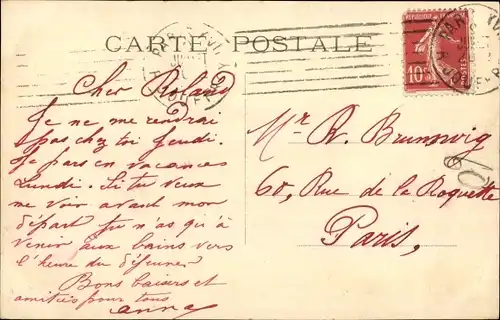 CARTE POSTALE
Cher Roland
Je ne me rendrai
pas chez toi Jeudi.
Je pars en vacances
Lundi. Si tu veux
me voir avant mon
départ tu n'as qu'à
venir aux bains vers
l'heure du déjeuner
Bons baisers et
amitiés pour tous
Anna
10
Mr R. Brunswig
60, Rue de la Roquette
Paris,